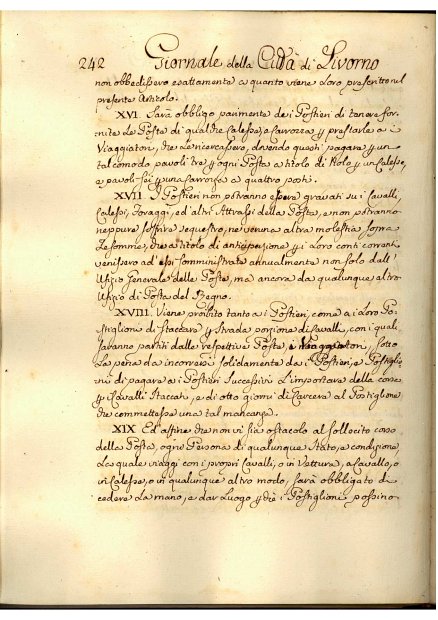 242 Giornale della Città di Livorno
non obbedissero esattamente a quanto viene loro prescritto nel
presente Articolo.
XVI. Sarà obbligo parimente dei Postieri di tenere for-
nite le Poste di qualche Calesse, e Carrozza p prestarle a i
Viaggiatori, che le ricercassero, dovendo questi pagare p un
tal comodo pavoli tre p ogni Posta a titolo di Nolo p un Calesse,
e pavoli sei p una Carrozza a quattro posti.
XVII. I Postieri non potranno essere gravati su i Cavalli,
Calessi, Foraggi, ed altri Attrassi della Posta, e non potranno
neppure soffrire sequestro, ne veruna altra molestia sopra
le somme, che a titolo di anticipazione p i loro conti correnti
venissero ad essi somministrate annualmente non solo dall'
Ufizio Generale delle Poste, ma ancora da qualunque altro
Ufizio di Posta del Regno.
XVIII. Viene proibito tanto a i Postieri, come a i loro Po-
stiglioni di staccare p strada porzione di Cavalli, con i quali
saranno partiti dalle respettive Poste, i Viaggiatori, sotto
la pena da incorrersi solidamente da i Postieri, e Postiglio-
ni di pagare a i Postieri successivi l'importare della corsa
p i Cavalli staccati, e di otto giorni di Carcere al Postiglione
che commettesse una tal mancanza.
XIX Ed affine che non vi sia ostacolo al sollecito corso
della Posta, ogni Persona di qualunque stato, e condizione,
la quale viaggi con i propri Cavalli, o in Vettura, a Cavallo, o
in Calesse, o in qualunque altro modo, sarà obbligato di
cedere la mano, e dar luogo p che i Postiglioni possino